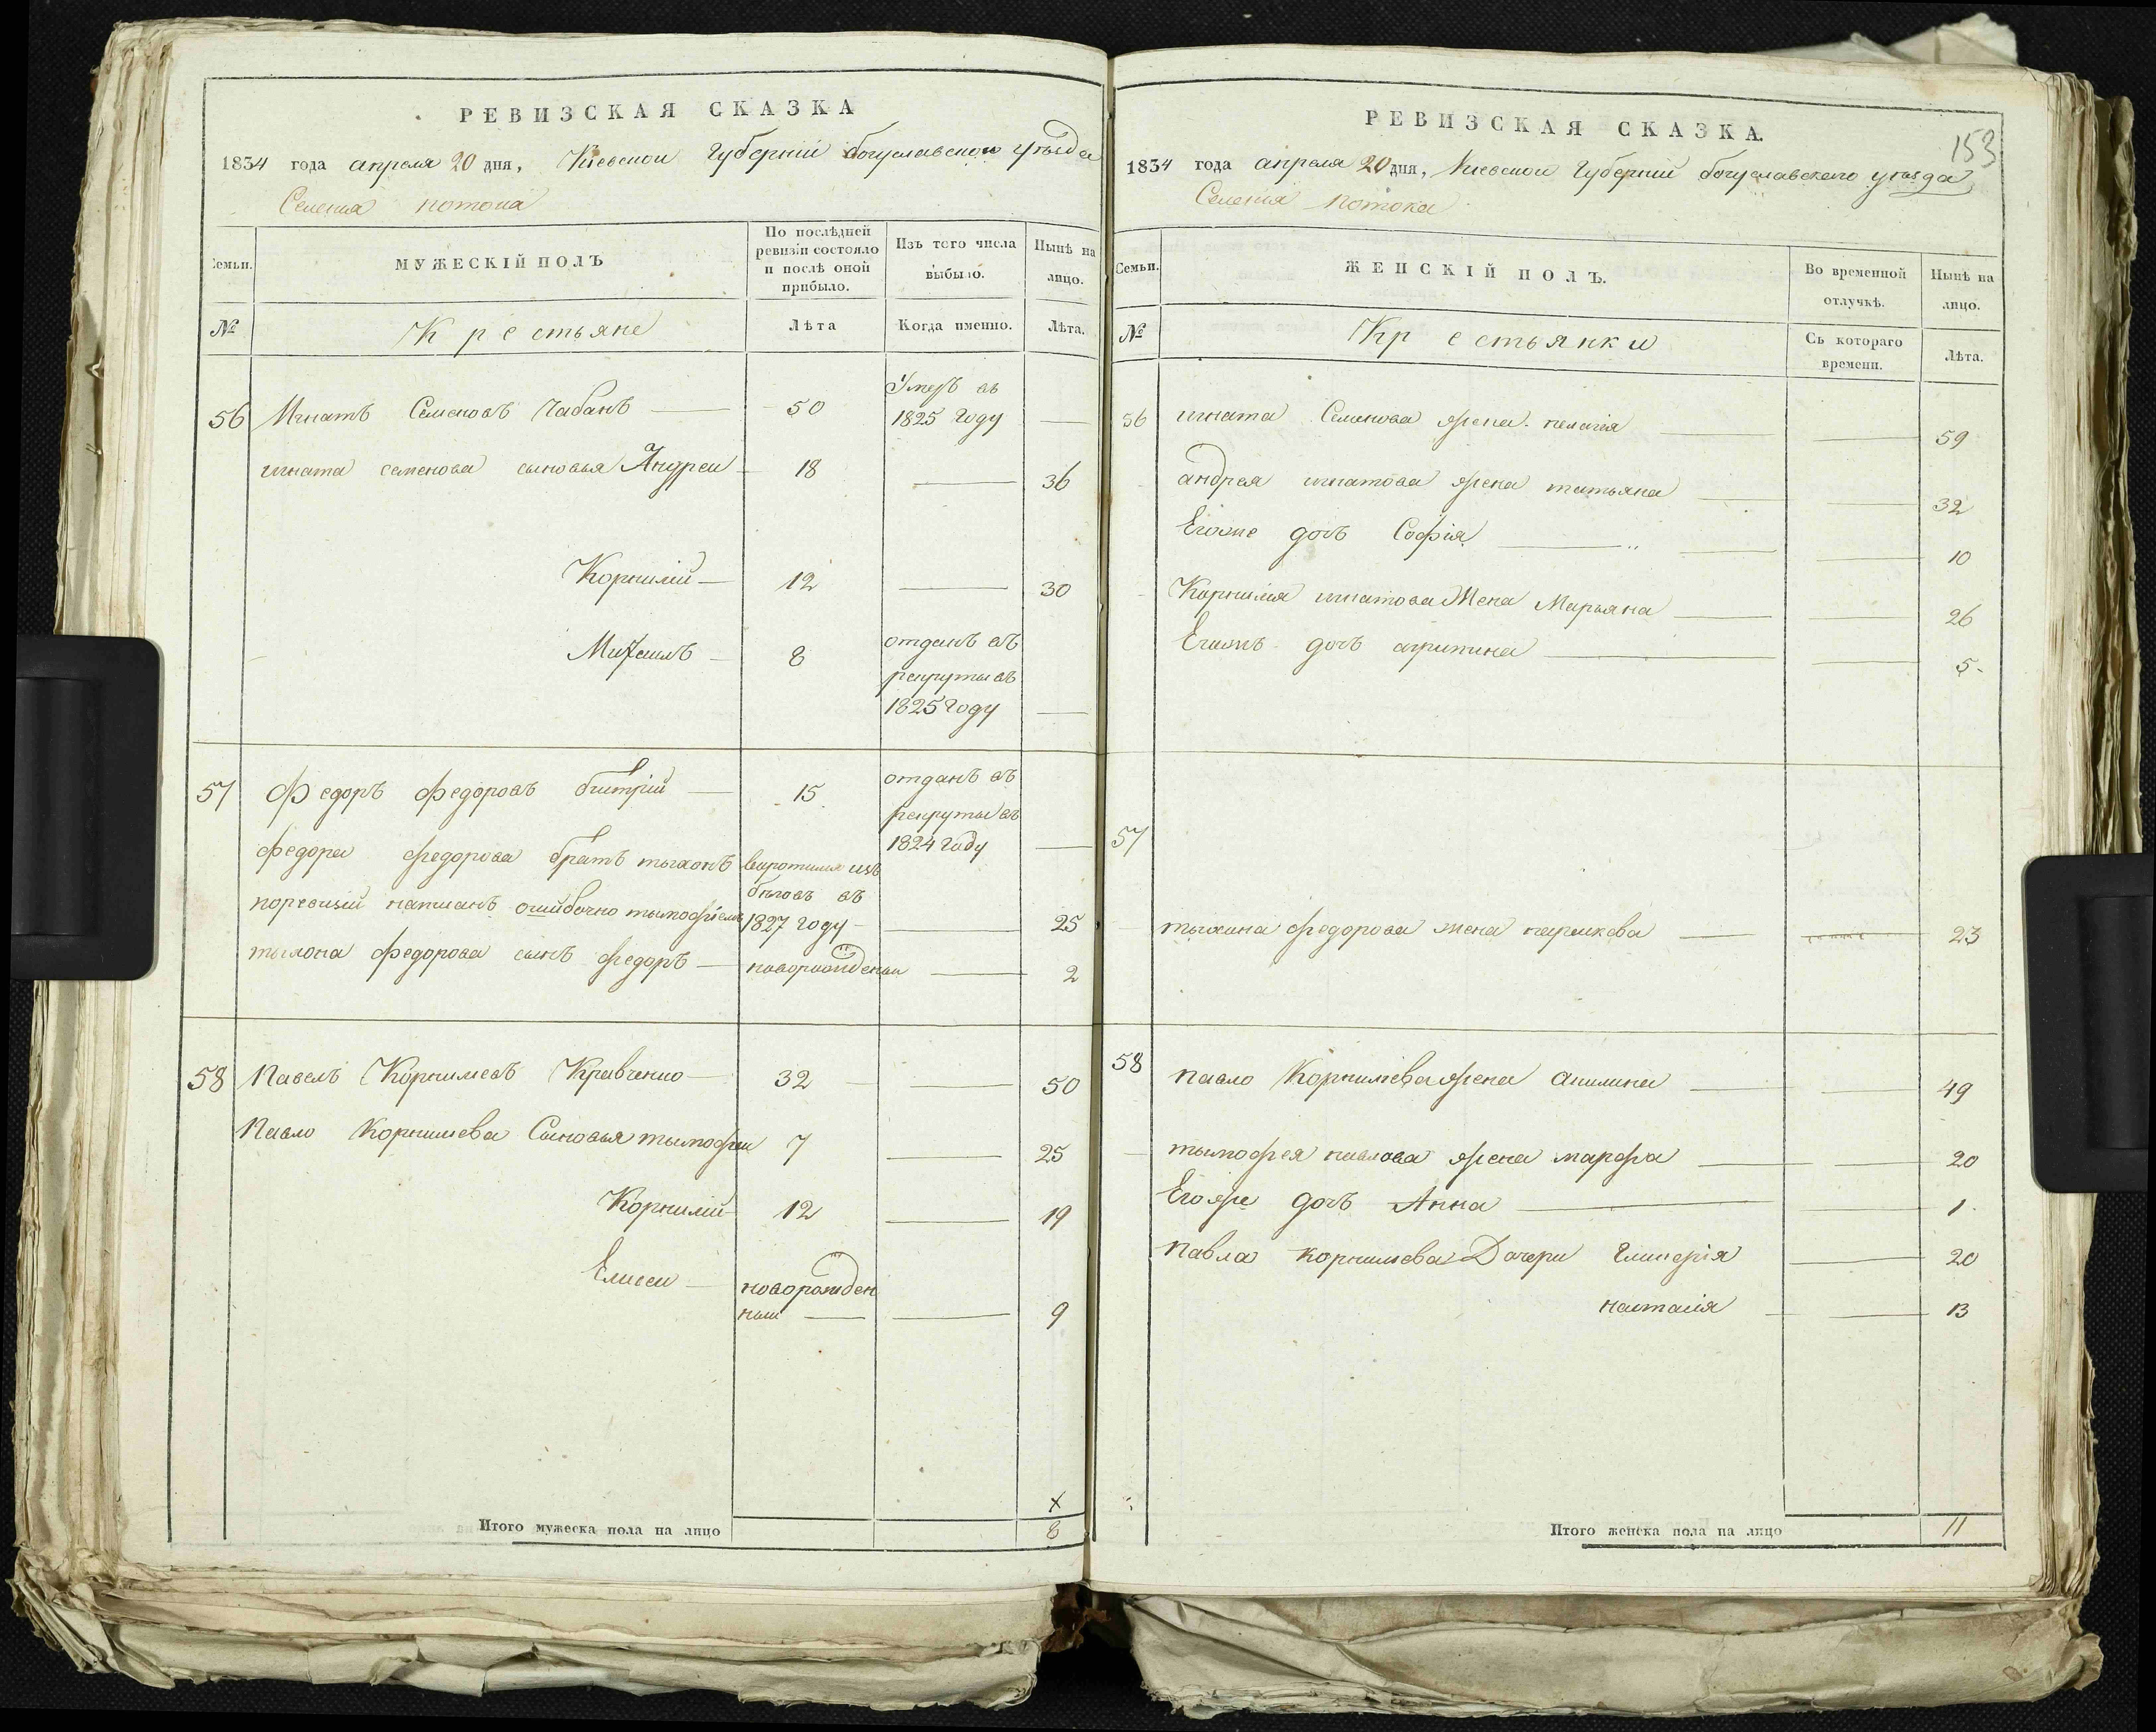 РЕВИЗСКАЯ СКАЗКА
1834 года апреля 20 дня, Киевской Губернии богуславского уезда
Селения потока
Семьи.
МУЖЕСКІЙ ПОЛЪ
По послѣдней ревизіи состояло и послѣ оной прибыло.
Изъ того числа выбыло.
Нынѣ на лицо.
№
Крестьяне
Лѣта
Когда именно.
Лѣта.
56 Игнатъ Семеновъ Чабанъ — 50 Умеръ въ 1825 Году —
игната семенова сыновья Андреи — 18 — 36
Корнилій — 12 — 30
Михаилъ — 8 отданъ въ рекруты въ 1825 Году —
57 Федоръ федоровъ — 15 отданъ въ рекруты въ 1824 Году —
федора федорова братъ тыхонъ воротился изъ
поревизіи написанъ ошибочно тымофіемъ бѣговъ въ 1827 году — 25
тыхона федорова сынъ федоръ — новорожденыи — 2
58 Павелъ Корнилиевъ Кравченко — 32 — 50
Павло Корнилиева Сыновья тымофеи 7 — 25
Корнилий — 12 — 19
Елисеи — новорожден
ныи — 9
х
Итого мужеска пола на лицо 8
РЕВИЗСКАЯ СКАЗКА.
153
1834 года апреля 20 дня, Киевской Губернии богуславского уезда
Селенія потока
Семьи.
ЖЕНСКІЙ ПОЛЪ.
Во временной отлучкѣ.
Нынѣ на лицо.
№
Крестьянки
Съ котораго времени.
Лѣта.
56 игната Семенова жена пелагія — 59
андрея игнатова жена татьяна — 32
Егоже дочь Софія — 10
Корнилія игнатова Жена Марьяна — 26
Егожъ дочь агрипина — 5
57
тыхона федорова жена параскева — 23
58 павло Корнилиева жена Акилина — 49
тымофея павлова жена марфа — 20
Егоже дочь Анна — 1
павла корнилиева Дочери Гликерія — 20
настасія — 13
Итого женска пола на лицо 11